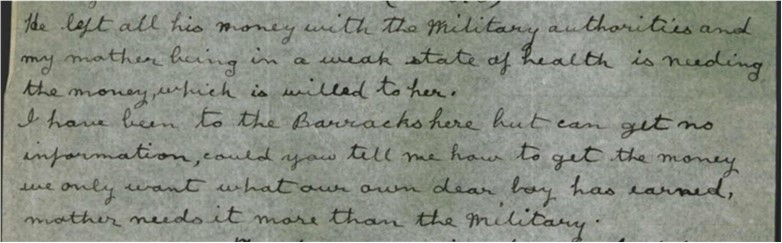 He left all his money with the Military authorities and
my mother being in a weak state of health is needing
the money, which is willed to her.
I have been to the Barracks here but can get no
information, could you tell me how to get the money
we only want what our own dear boy has earned,
mother needs it more than the Military.